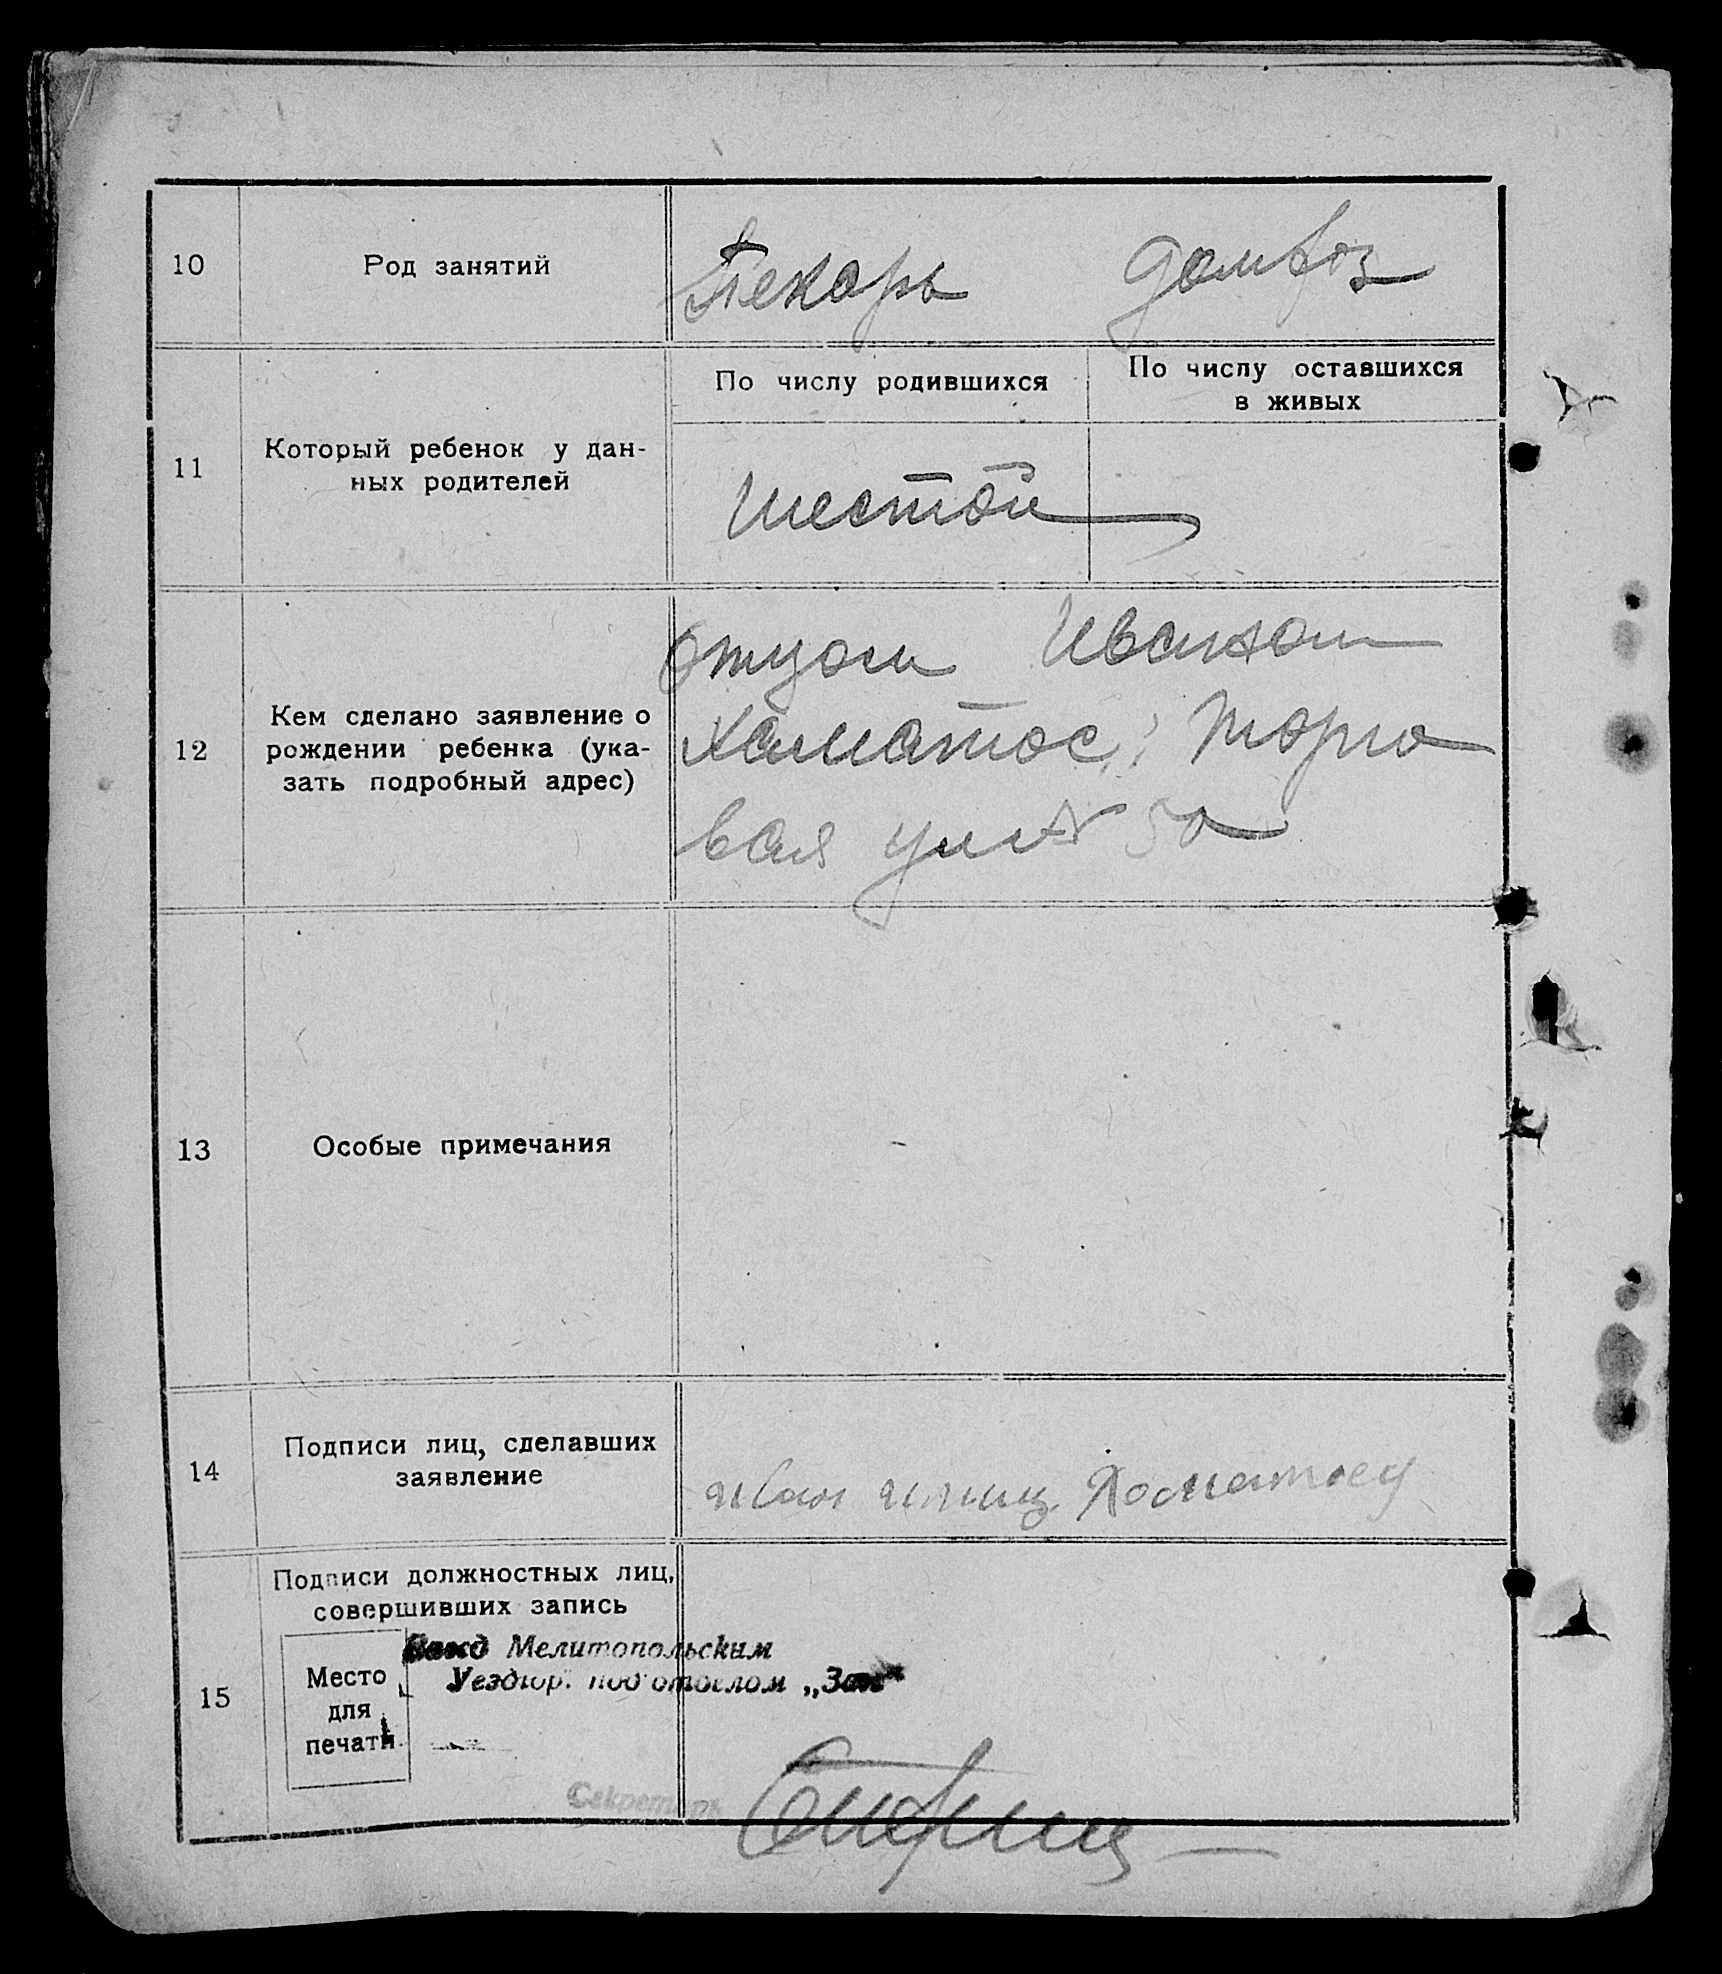 10 Род занятий Пекарь домхоз
11 Который ребенок у дан-
ных родителей
По числу родившихся
По числу оставшихся
в живых
Шестой
12 Кем сделано заявление о
рождении ребенка (ука-
зать подробный адрес)
Отцом Иваном
Хаматос, Торго
вая ул № 50
13 Особые примечания
14 Подписи лиц, сделавших
заявление
15 Подписи должностных лиц,
совершивших запись
Место
для
печати
Мелитопольским
под'отделом
Секретарь